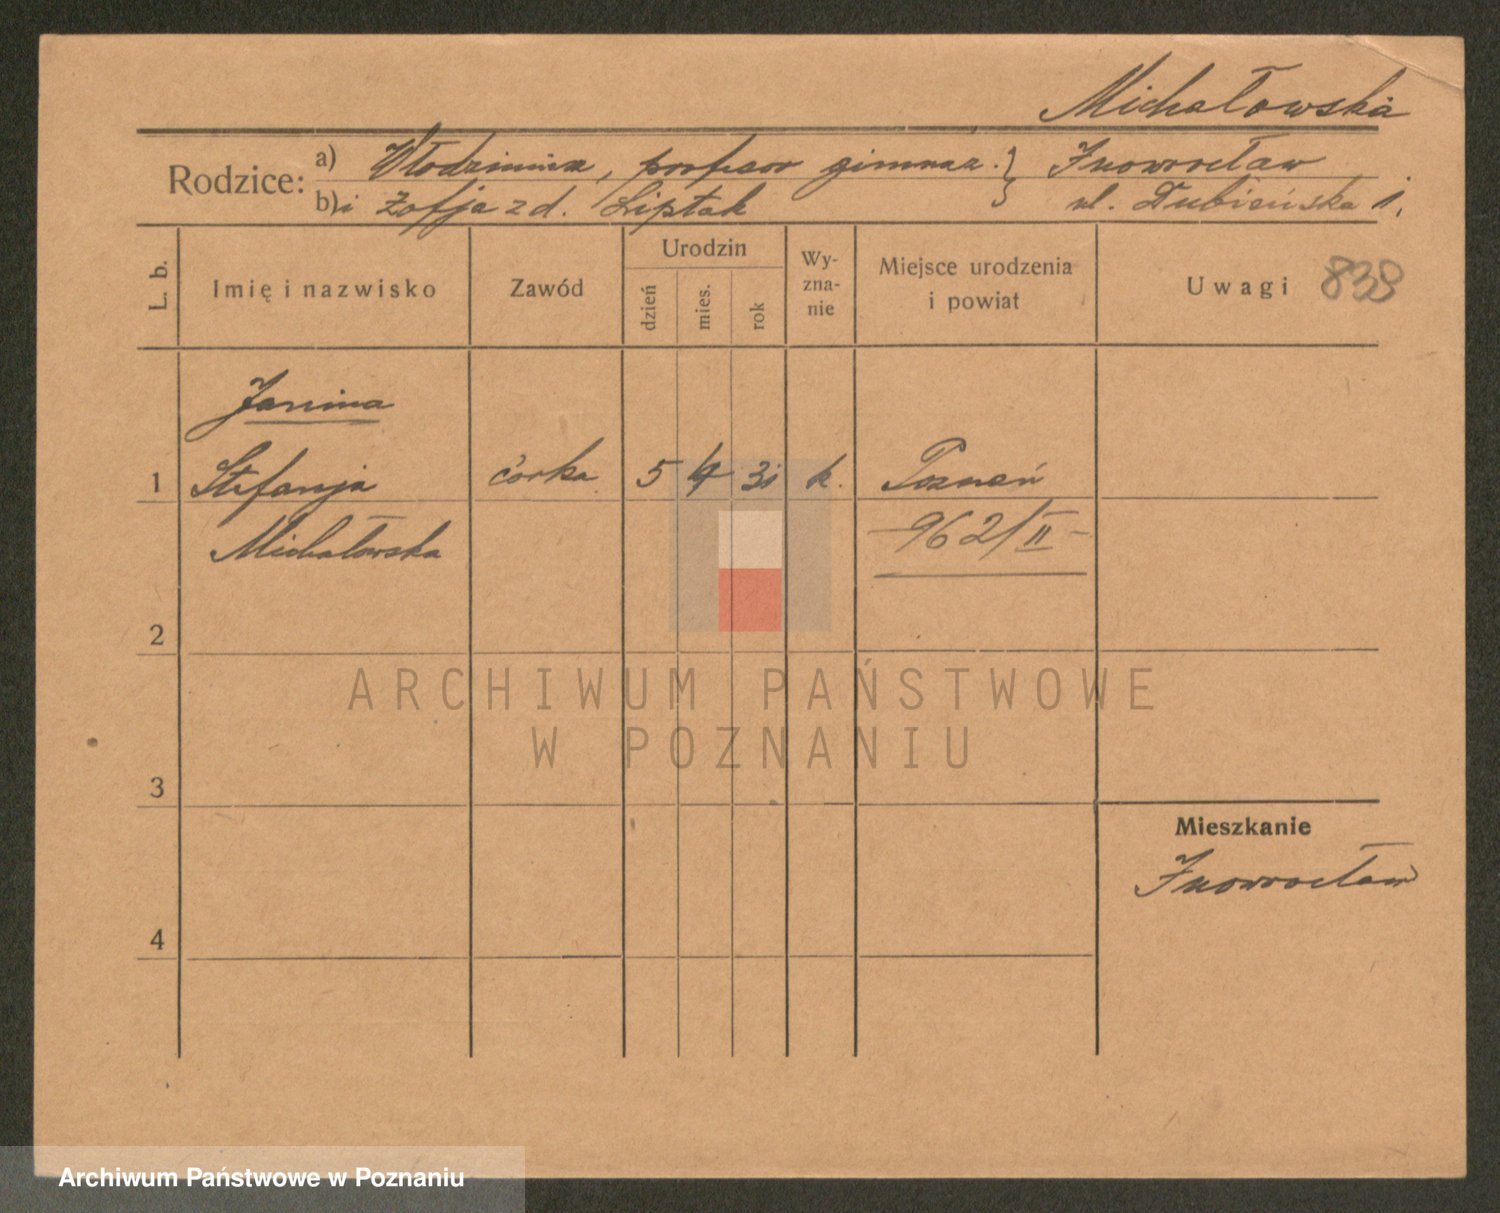 Michałowska
Rodzice: a) Włodzimierz, profesor gimnaz. } Inowrocław
b) i Zofja z d. Liptak ul. Dubieńska 1.
L. b. Imię i nazwisko Zawód Urodzin dzień mies. rok Wy-zna-nie Miejsce urodzenia i powiat Uwagi 838
Janina
1 Stefanja córka 5 4 31 k. Poznań
Michałowska -962/II-
2
ARCHIWUM PAŃSTWOWE
W POZNANIU
3
Mieszkanie
Inowrocław
4
Archiwum Państwowe w Poznaniu